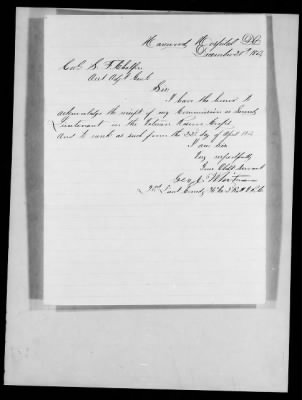 Harewood Hospital DC
December 21st 1864
Col S. F. Chalfin
Asst Adjt Genl
Sir
I have the honor to
acknowledge the receipt of my Commission as Second
Lieutenant in the Veteran Reserve Corps
And to rank as such from the 22d day of April 1864
I am Sir
Very respectfully
Your Obdt Servant
Geo
2d Lieut Comdg